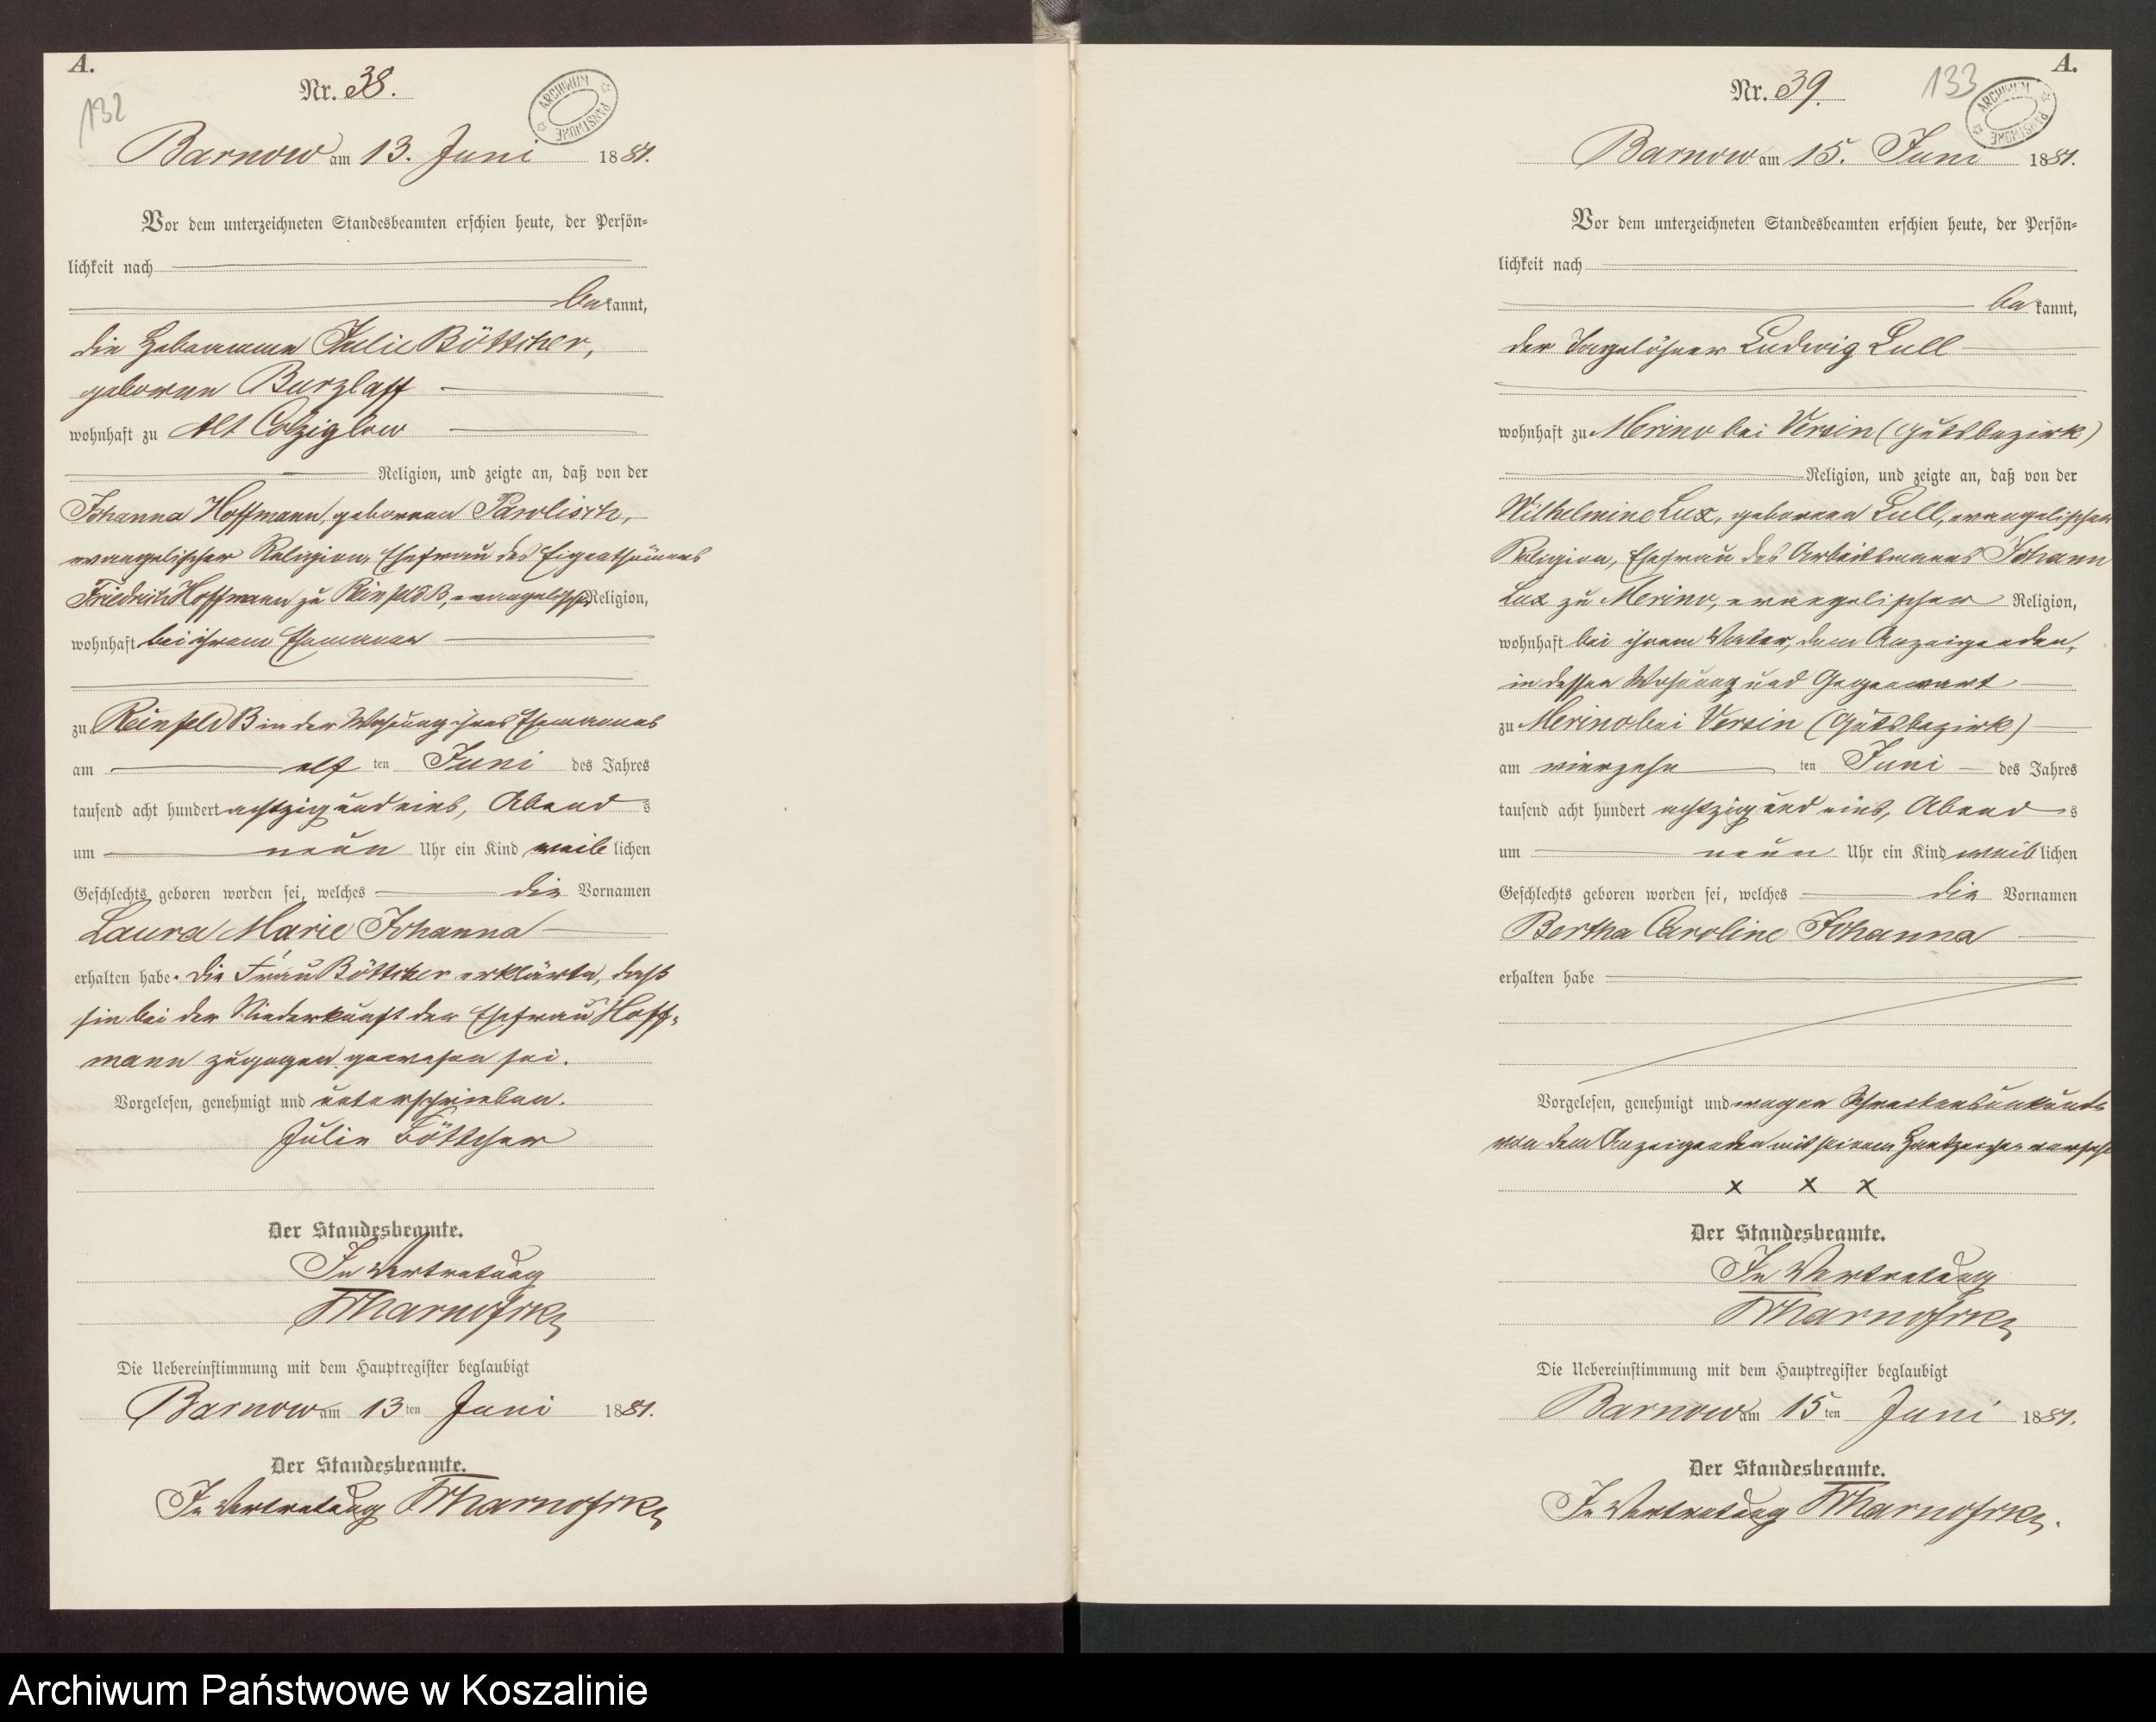 A.
132
Nr. 38.
ARCHIWUM PAŃSTWOWE
Barnow am 13. Juni 1881.
Vor dem unterzeichneten Standesbeamten erschien heute, der Persön-
lichkeit nach
bekannt,
die Hebamme Julie Böttcher,
geborene Burzlaff
wohnhaft zu Alt Colziglow
Religion, und zeigte an, daß von der
Johanna Hoffmann, geborenen
evangelischer Religion, Ehefrau des Eigenthümers
Friedrich Hoffmann zu Reinfeld B, evangelischer Religion,
wohnhaft bei ihrem Ehemanne
zu Reinfeld B in der Wohnung ihres Ehemannes
am elf ten Juni des Jahres
tausend acht hundert achtzig und eins, Abends
um neun Uhr ein Kind weiblichen
Geschlechts geboren worden sei, welches die Vornamen
Laura Marie Johanna
erhalten habe. Die Frau Böttcher erklärte, daß
sie bei der Niederkunft der Ehefrau Hoff-
mann zugegen gewesen sei.
Vorgelesen, genehmigt und unterschrieben.
Julie Böttcher
Der Standesbeamte.
In Vertretung
Die Uebereinstimmung mit dem Hauptregister beglaubigt
Barnow am 13ten Juni 1881.
Der Standesbeamte.
In Vertretung
A.
133
Nr. 39.
ARCHIWUM PAŃSTWOWE
Barnow am 15. Juni 1881.
Vor dem unterzeichneten Standesbeamten erschien heute, der Persön-
lichkeit nach
bekannt,
der Tagelöhner Ludwig Lull
wohnhaft zu Merino bei Versin (Gutsbezirk)
Religion, und zeigte an, daß von der
Wilhelmine Lux, geborenen Lull, evangelischer
Religion, Ehefrau des Arbeitsmanns Johann
Lux zu Merino, evangelischer Religion,
wohnhaft bei ihrem Vater, dem Anzeigenden,
in dessen Wohnung und Gegenwart
zu Merino bei Versin (Gutsbezirk)
am vierzehn ten Juni des Jahres
tausend acht hundert achtzig und eins, Abends
um neun Uhr ein Kind weiblichen
Geschlechts geboren worden sei, welches die Vornamen
Bertha Caroline Johanna
erhalten habe
Vorgelesen, genehmigt und wegen Schreibensunkunde
von dem Anzeigenden mit seinem Handzeichen versehen
x x x
Der Standesbeamte.
In Vertretung
Die Uebereinstimmung mit dem Hauptregister beglaubigt
Barnow am 15ten Juni 1881.
Der Standesbeamte.
In Vertretung
Archiwum Państwowe w Koszalinie